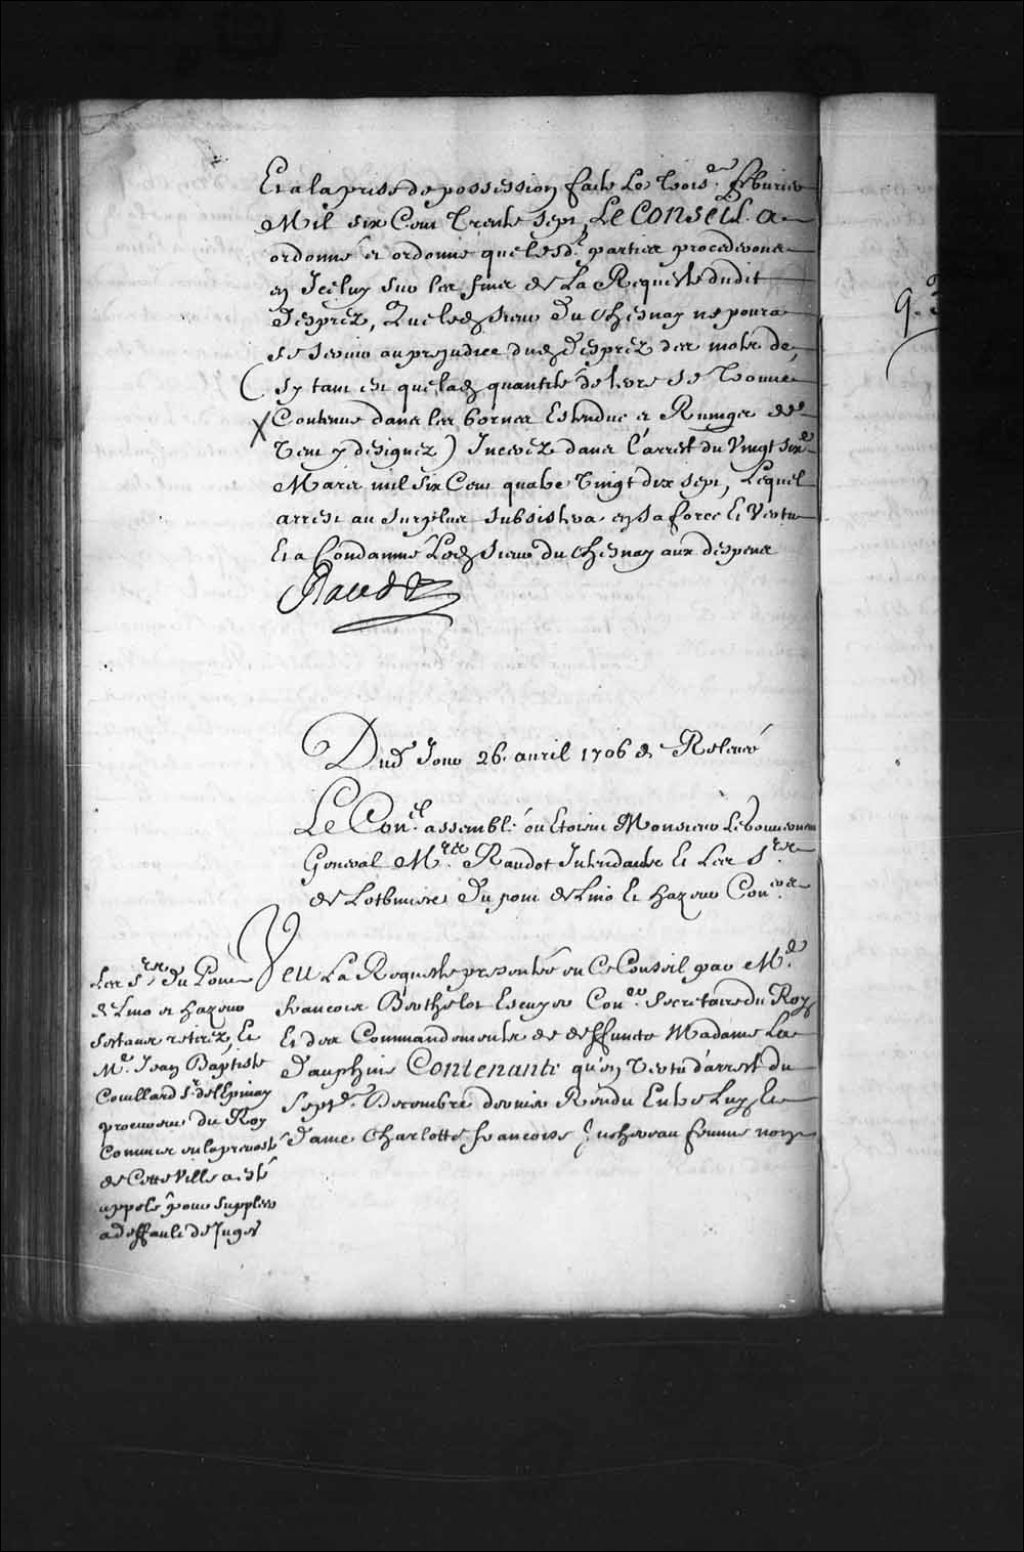 Et a la prise de possession faite Le trois.e febvrier
Mil six Cent trente sept, Le Conseil a
ordonné et ordonne que lesd. parties procederont
en Iceluy sur les fins de La Requeste dudit
Desprez, Que led Sieur Du Chesnay ne poura
se servir au prejudice dud Desprez des mots de,
(sy tant est que lad quantité de terre se trouve
X Contenue dans les bornes Estendue et Rumgs de
vent y designez) Inserez dans l'arrest du Vingt six.e
Mars mil six Cent quatre Vingt dix sept, Lequel
arrest au surplus subsistera en sa force Et Vertu
Et a Condamné Led Sieur du Chesnay aux despens
Raudot
Dud Jour 26. avril 1706 de Relevé
Le Con.el assemblé ou Etoient Monsieur Le Gouverneur
General M.re Raudot Intendants Et Les S.rs
de Lotbiniere Du pont de Lino Et hazeur Con.ers
Veu La Requeste presentée en Ce Conseil par M.e
francois Berthelot Escuyer Con.er Secretaire du Roy
Et des Commandements de deffuncte Madame La
Dauphine Contenante qu'en Vertu d'arrest du
Sept.e Decembre dernier Rendu Entre Luy, Et
Dame Charlotte francoise Juchereau femme non
Les S.rs Du Pont
de Lino et hazeur
s'estant retirez, Et
M.e Jean Baptiste
Couillard S.r de l'Epinay
procureur du Roy
Commis en la prevosté
de Cette Ville a esté
appelé pour suppleer
a deffault de Juges
9.